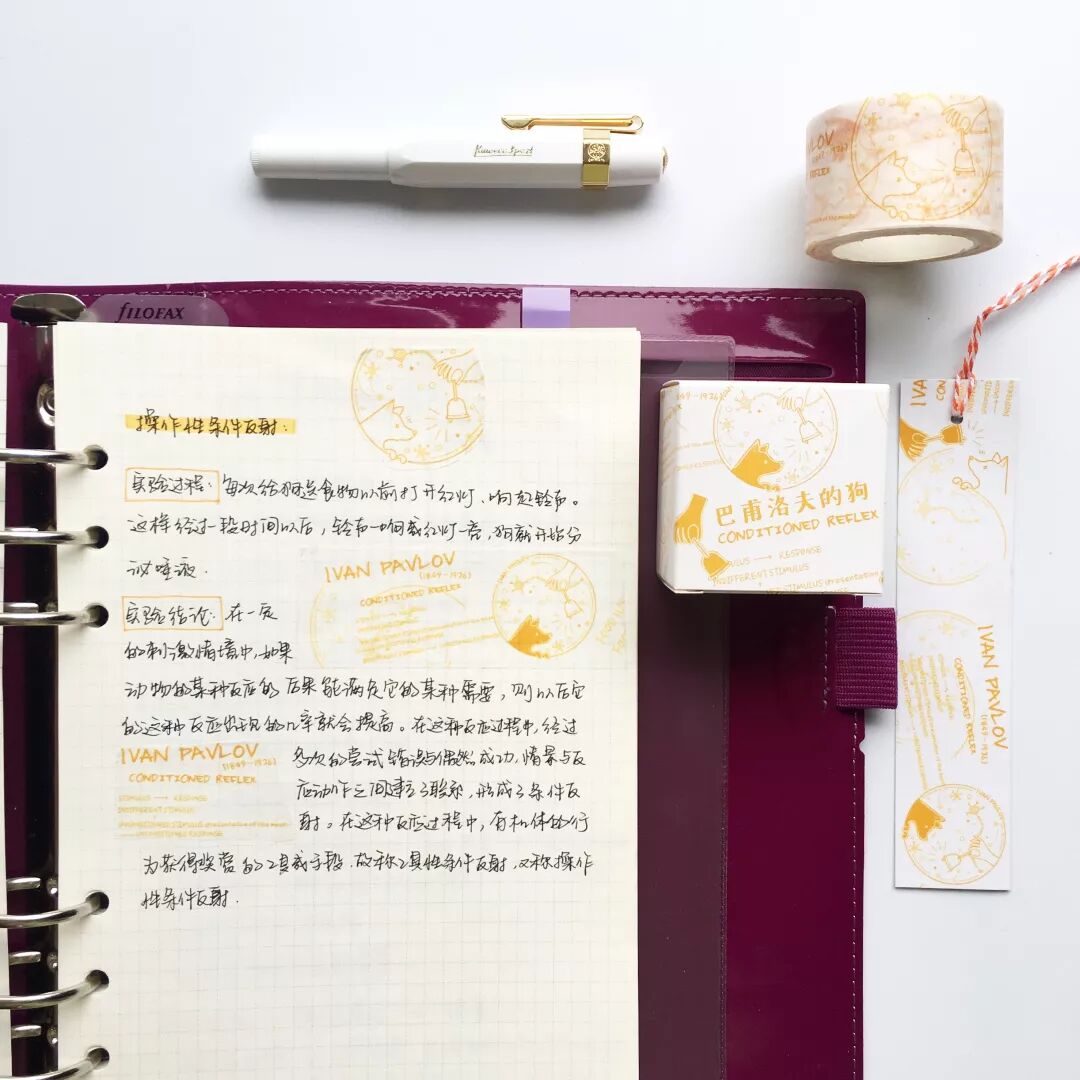 Kaweco Sport
PAVLOV
(1849-1936)
REFLEX
fILOFAX
操作性条件反射:
实验过程: 每次给狗送食物以前打开红灯、响起铃声。
这样经过一段时间以后, 铃声一响或红灯一亮, 狗就开始分
泌唾液.
实验结论: 在一定
的刺激情境中, 如果
动物的某种反应的后果能满足它的某种需要, 则以后它
的这种反应出现的几率就会提高。在这种反应过程中, 经过
多次的尝试错误与偶然成功, 情景与反
应动作之间建立了联系, 形成了条件反
射。在这种反应过程中, 有机体的行
为获得奖赏的工具或手段. 故称工具性条件反射, 又称操作
性条件反射.
IVAN PAVLOV
(1849-1936)
CONDITIONED REFLEX
IVAN PAVLOV
(1849-1936)
CONDITIONED REFLEX
STIMULUS → RESPONSE
INDIFFERENT STIMULUS
49-1936)
巴甫洛夫的狗
CONDITIONED REFLEX
ULUS → RESPONSE
INDIFFERENT STIMULUS
STIMULUS (presentation
IVAN
IVAN PAVLOV
(1849-1936)
CONDITIONED REFLEX